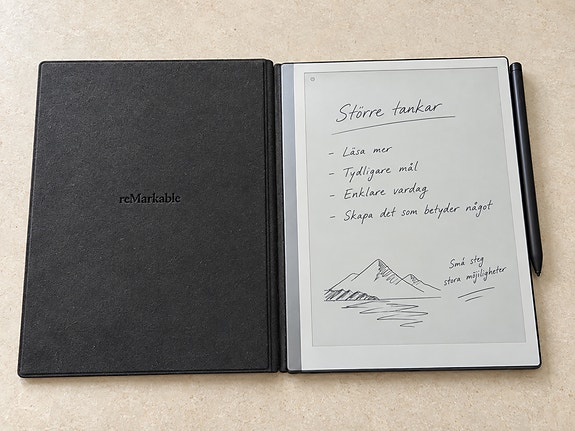 reMarkable
Större tankar
- Läsa mer
- Tydligare mål
- Enklare vardag
- Skapa det som betyder något
Små steg
stora möjiligheter